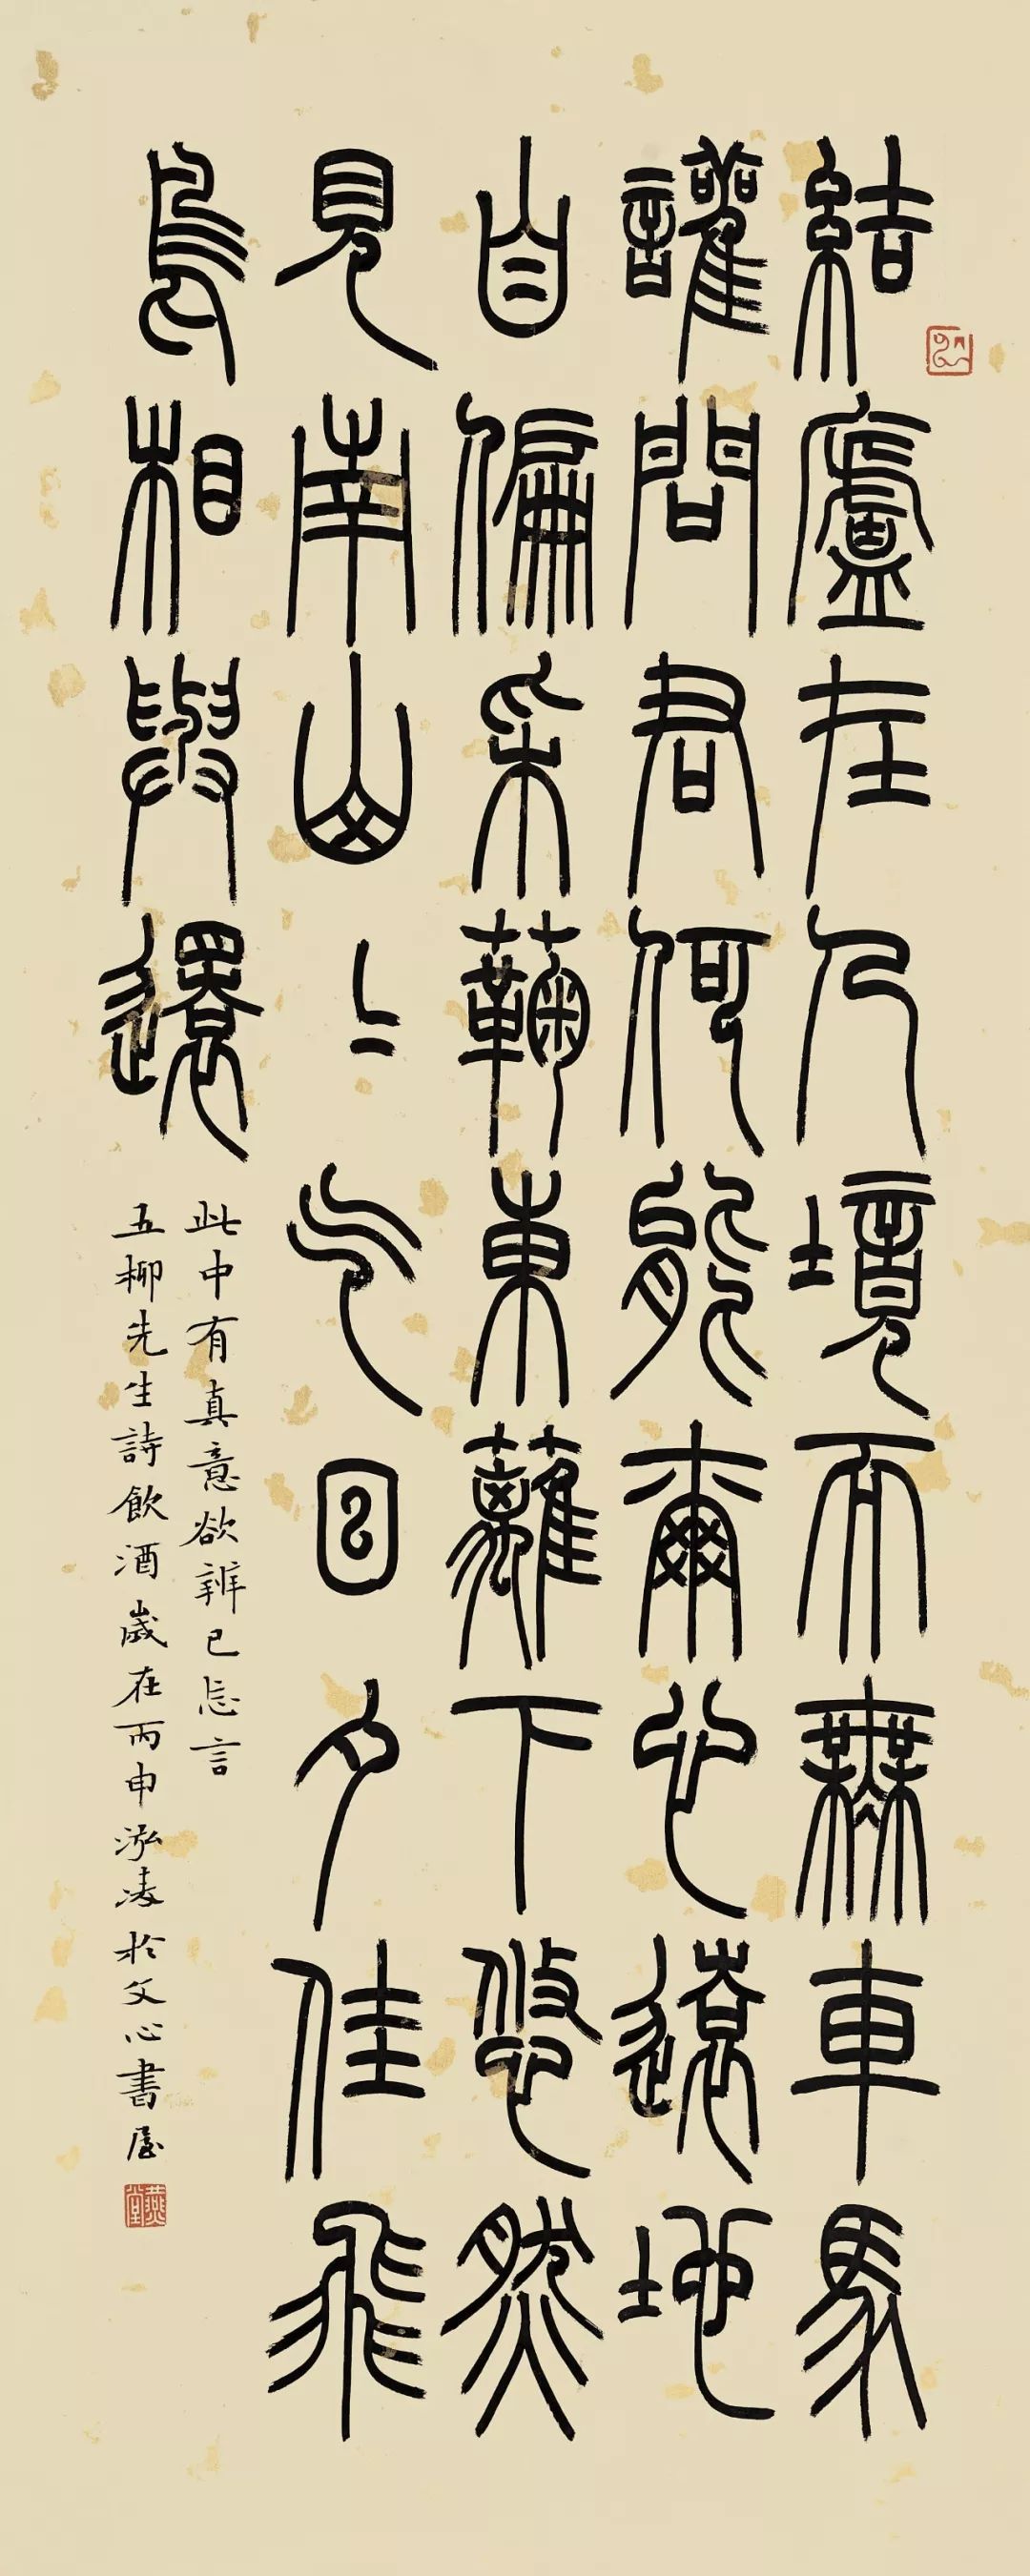 結廬在人境而無車馬
讙問君何能爾心遠地
自偏采蘜東蘺下悠然
見南山〻气日夕佳飛
鳥相與還
此中有真意欲辨已忘言
五柳先生詩飲酒歲在丙申泓凌於文心書屋